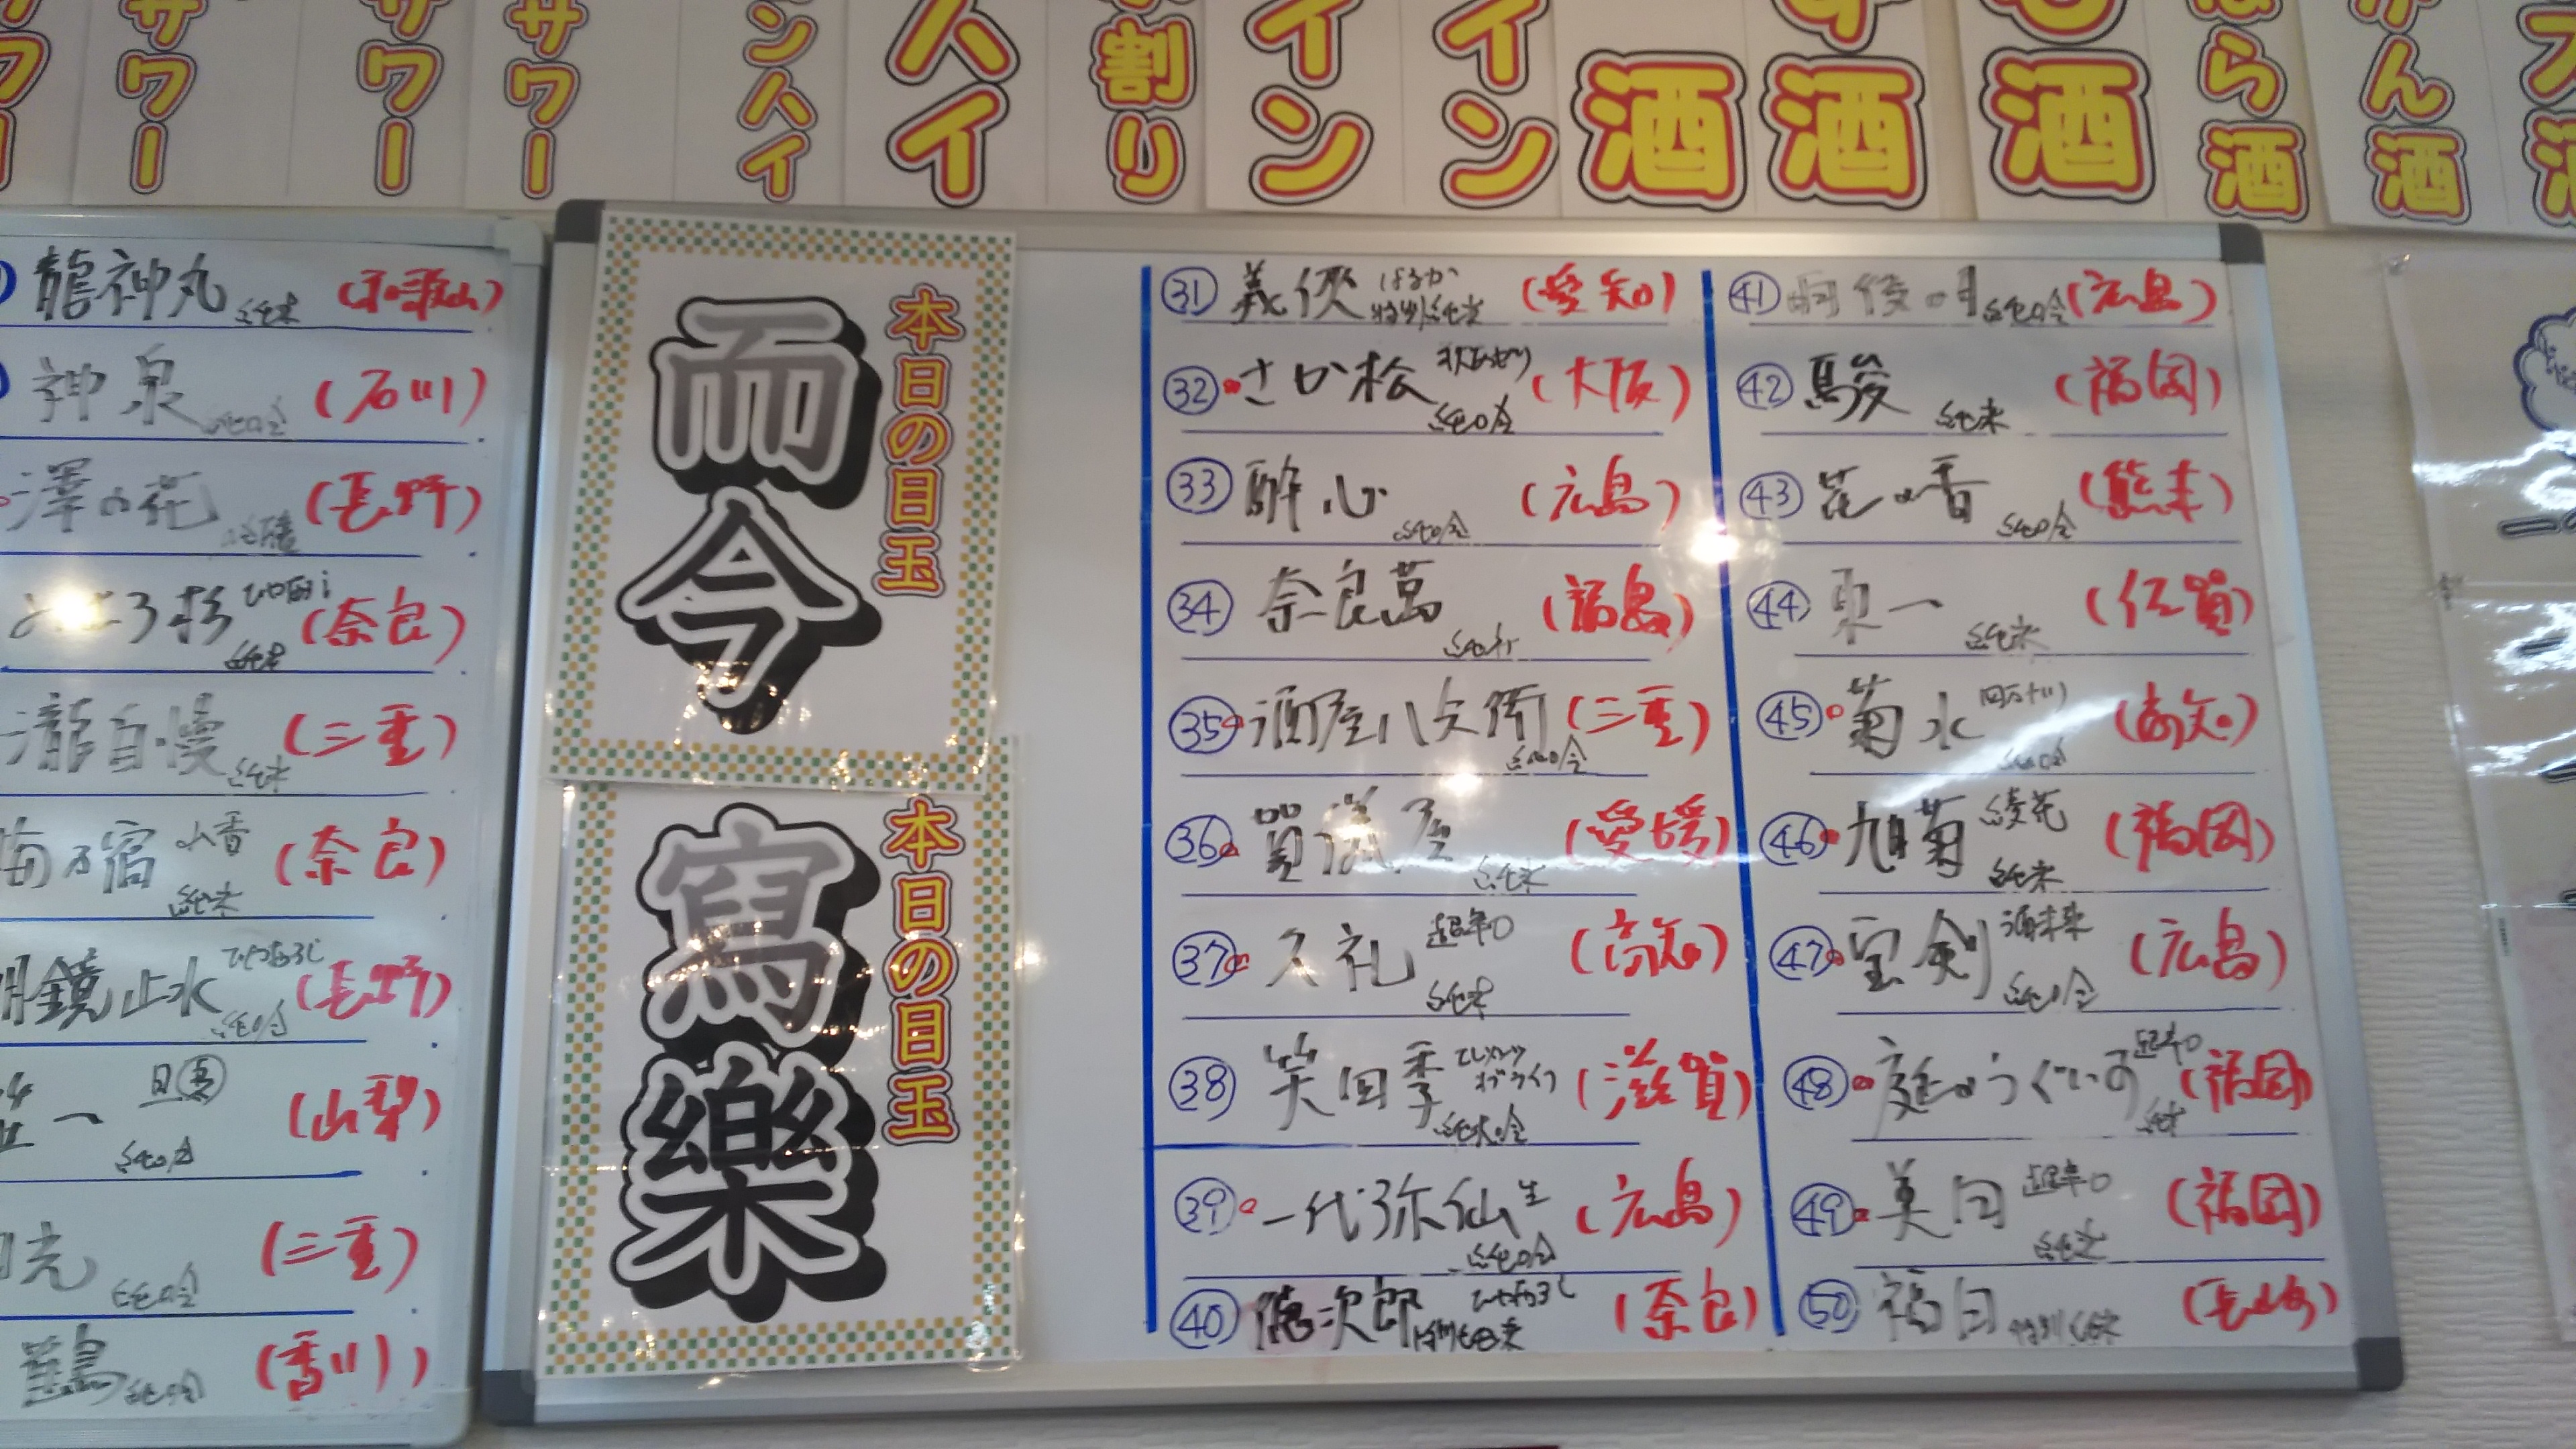 サワー
サワー
サワー
ンハイ
ハイ
割り
イン
イン
酒
酒
酒
ら酒
ん酒
龍神丸 純米 (和歌山)
神泉 純吟 (石川)
澤の花 (長野)
ろ杉 純米 (奈良)
瀧自慢 純米 (三重)
梅乃宿 山香 純米 (奈良)
明鏡止水 ひやおろし 純吟 (長野)
一 純吟 (山梨)
光 純吟 (三重)
鶴 純吟 (香川)
本日の目玉
而今
本日の目玉
寫樂
㉛ 義侠 はるか 特別純米 (愛知)
㉜ さか松 秋あがり 純吟 (大阪)
㉝ 酔心 純吟 (広島)
㉞ 奈良萬 (福島)
㉟ 酒屋八兵衛 純吟 (三重)
㊱ 賀儀屋 純米 (愛媛)
㊲ 久礼 超辛口 純米 (高知)
㊳ 笑四季 純米吟 (滋賀)
㊴ 一代弥山 生 純吟 (広島)
㊵ 徳次郎 (奈良)
㊶ 雨後の月 純吟 (広島)
㊷ 駿 純米 (福岡)
㊸ 花の香 純吟 (熊本)
㊹ 東一 純米 (佐賀)
㊺ 菊水 四万十川 純吟 (高知)
㊻ 旭菊 綾花 純米 (福岡)
㊼ 宝剣 酒未来 純吟 (広島)
㊽ 庭のうぐいす 超辛口 純米 (福岡)
㊾ 美田 超辛口 純米 (福岡)
㊿ 福田 特別純米 (長崎)